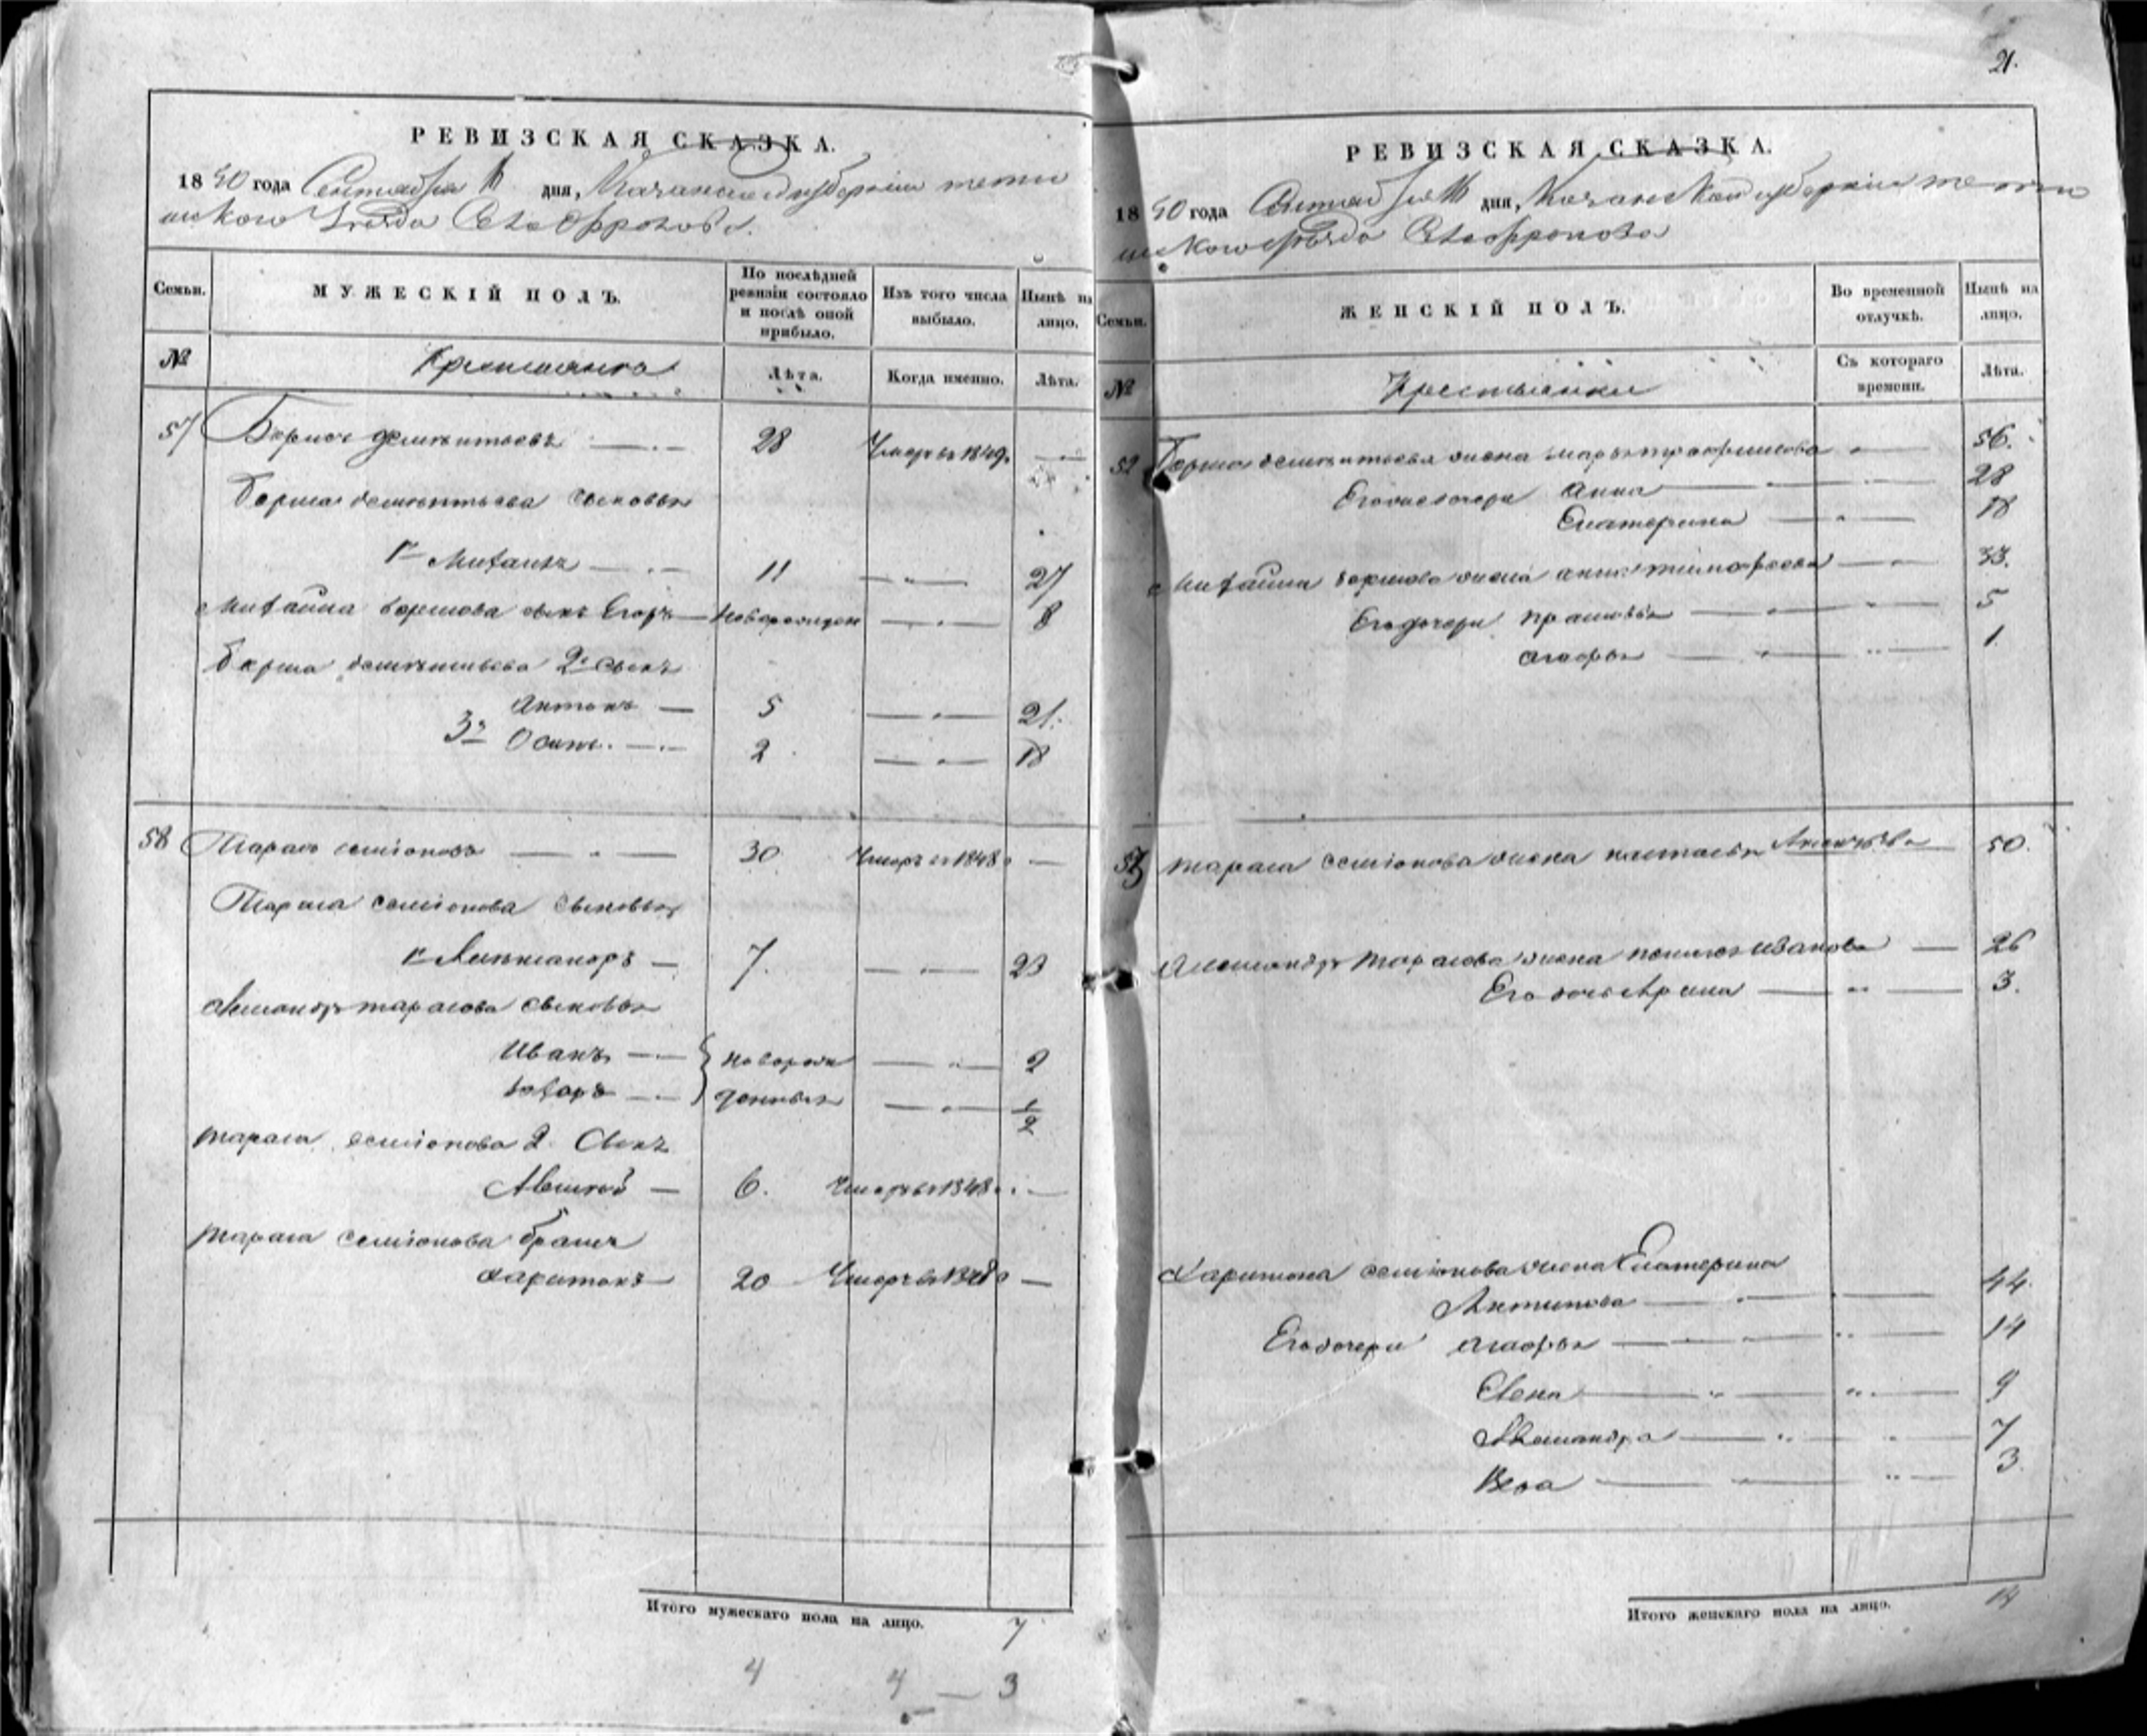 РЕВИЗСКАЯ СКАЗКА.
1850 года Сентября дня, Казанской губернiи тетю
шского Уезда
Семьи.
МУЖЕСКІЙ ПОЛЪ.
По послѣдней ревизіи состояло и послѣ оной прибыло.
Изъ того числа выбыло.
Нынѣ на лицо.
№
Крестьянъ
Лѣта.
Когда именно.
Лѣта.
57 Борисъ дементьевъ 28 Умеръ в 1849. —
Бориса дементьева сыновья
1й Михаила 11 — 27
Михаила борисова сынъ Егоръ новорожден — 8
Бориса дементьева 2й сынъ
Антонъ — 5 — 21.
3й Осипъ. — 2 — 18
58 Тарасъ семiоновъ — 30 Умеръ в 1848 —
Тараса семiонова сыновья
1й Александръ — 7. — 23
Александръ тарасова сыновья
Иванъ — новорож — 2
Захаръ — денныя — 1/2
тараса семiонова 2й Сынъ
Алексѣй — 6. Умеръ в 1848 —
тараса семiонова братъ
харитонъ 20 Умеръ в 1848 —
Итого мужескаго пола на лицо. 7
4 4 — 3
21.
РЕВИЗСКАЯ СКАЗКА.
1850 года Сентября дня, Казанской губернiи тетю
шского уезда
Семьи.
ЖЕНСКІЙ ПОЛЪ.
Во временной отлучкѣ.
Нынѣ на лицо.
№
Крестьянки
Съ котораго времени.
Лѣта.
Бориса дементьева жена марья трофимова — 56.
Его дочери Анна — 28
Екатерина — 18
Михаила борисова жена анна тимофеева — 33.
Его дочери прасковья — 5
агафья — 1.
тараса семiонова жена настасья — 50.
Александръ тарасова жена иванова — 26
Его дочь Арина — 3.
Харитона семiонова жена Екатерина
Антипова — 44.
Его дочери агафья — 14
Елена — 9
Александра — 7
Вера — 3.
Итого женскаго пола на лицо. 14